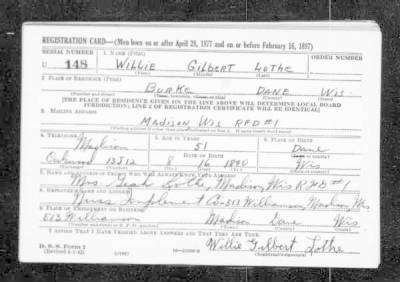 REGISTRATION CARD—(Men born on or after April 28, 1877 and on or before February 16, 1897)
SERIAL NUMBER 1. NAME (Print) ORDER NUMBER
U 148 WILLIE GILBERT LOTHE
(First) (Middle) (Last)
2. PLACE OF RESIDENCE (Print)
BURKE DANE WIS.
(Number and street) (Town, township, village, or city) (County) (State)
[THE PLACE OF RESIDENCE GIVEN ON THE LINE ABOVE WILL DETERMINE LOCAL BOARD
JURISDICTION; LINE 2 OF REGISTRATION CERTIFICATE WILL BE IDENTICAL]
3. MAILING ADDRESS
MADISON, WIS RFD #1
[Mailing address if other than place indicated on line 2. If same insert word same]
4. TELEPHONE 5. AGE IN YEARS 6. PLACE OF BIRTH
Madison 51 Dane
Oakwood 15J12 8 16 1890 Wis
7. NAME AND ADDRESS OF PERSON WHO WILL ALWAYS KNOW YOUR ADDRESS
Mrs. Lothe, Madison, Wis RFD #1
8. EMPLOYER'S NAME AND ADDRESS
Implement Co 513 Williamson, Madison, Wis
9. PLACE OF EMPLOYMENT OR BUSINESS
513 Williamson Madison Dane Wis.
(Number and street or R. F. D. number) (Town) (County) (State)
I AFFIRM THAT I HAVE VERIFIED ABOVE ANSWERS AND THAT THEY ARE TRUE.
Willie Gilbert Lothe
D. S. S. Form 1
(Revised 4-1-42) (over) (Registrant's signature)